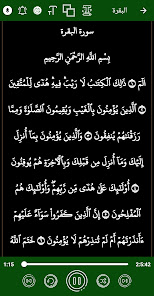 البقرة
سورة البقرة
بِسْمِ اللَّهِ الرَّحْمَٰنِ الرَّحِيمِ
الٓمٓ ۝ ذَٰلِكَ الْكِتَابُ لَا رَيْبَ فِيهِ هُدًى لِّلْمُتَّقِينَ
۝ الَّذِينَ يُؤْمِنُونَ بِالْغَيْبِ وَيُقِيمُونَ الصَّلَاةَ وَمِمَّا
رَزَقْنَاهُمْ يُنفِقُونَ ۝ وَالَّذِينَ يُؤْمِنُونَ بِمَا أُنزِلَ
إِلَيْكَ وَمَا أُنزِلَ مِن قَبْلِكَ وَبِالْآخِرَةِ هُمْ يُوقِنُونَ
۝ أُولَٰئِكَ عَلَىٰ هُدًى مِّن رَّبِّهِمْ وَأُولَٰئِكَ هُمُ
الْمُفْلِحُونَ ۝ إِنَّ الَّذِينَ كَفَرُوا سَوَاءٌ عَلَيْهِمْ
ءَأَنذَرْتَهُمْ أَمْ لَمْ تُنذِرْهُمْ لَا يُؤْمِنُونَ ۝ خَتَمَ اللَّهُ
1:15 2:5:42